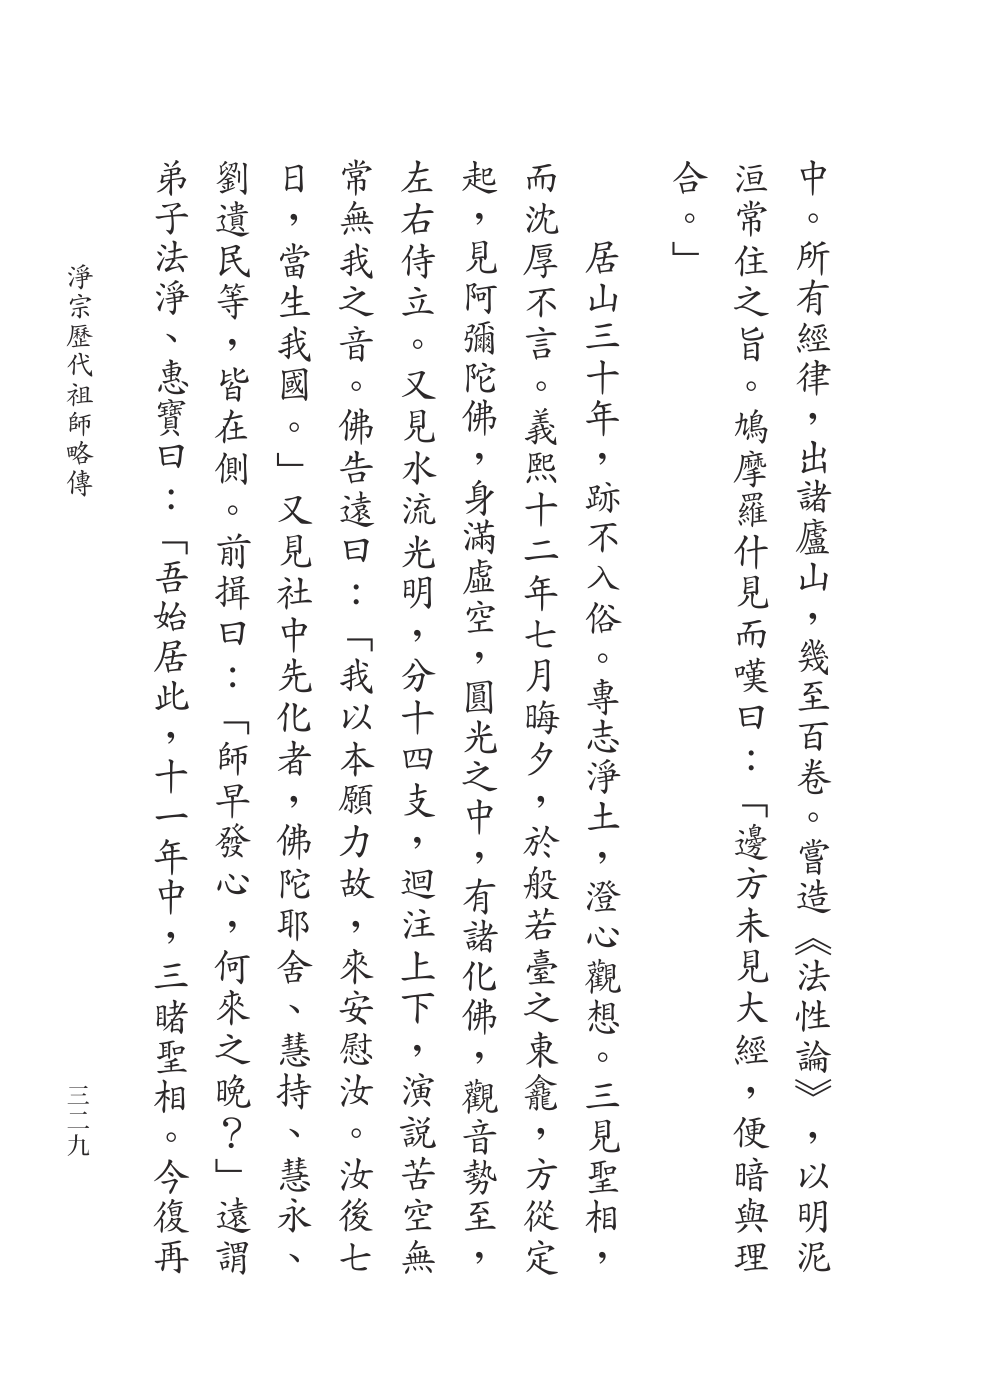 中。所有經律，出諸廬山，幾至百卷。嘗造《法性論》，以明泥
洹常住之旨。鳩摩羅什見而嘆曰：「邊方未見大經，便暗與理
合。」
居山三十年，跡不入俗。專志淨土，澄心觀想。三見聖相，
而沈厚不言。義熙十二年七月晦夕，於般若臺之東龕，方從定
起，見阿彌陀佛，身滿虛空，圓光之中，有諸化佛，觀音勢至，
左右侍立。又見水流光明，分十四支，迴注上下，演說苦空無
常無我之音。佛告遠曰：「我以本願力故，來安慰汝。汝後七
日，當生我國。」又見社中先化者，佛陀耶舍、慧持、慧永、
劉遺民等，皆在側。前揖曰：「師早發心，何來之晚？」遠謂
弟子法淨、惠寶曰：「吾始居此，十一年中，三睹聖相。今復再
淨宗歷代祖師略傳
三二九